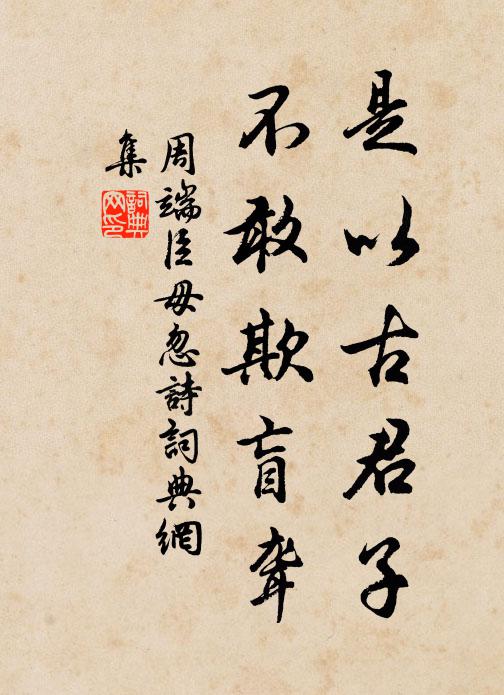 是以古君子
不敢欺盲聋
周端臣毋忽詩詞典網
集
詞典
网印